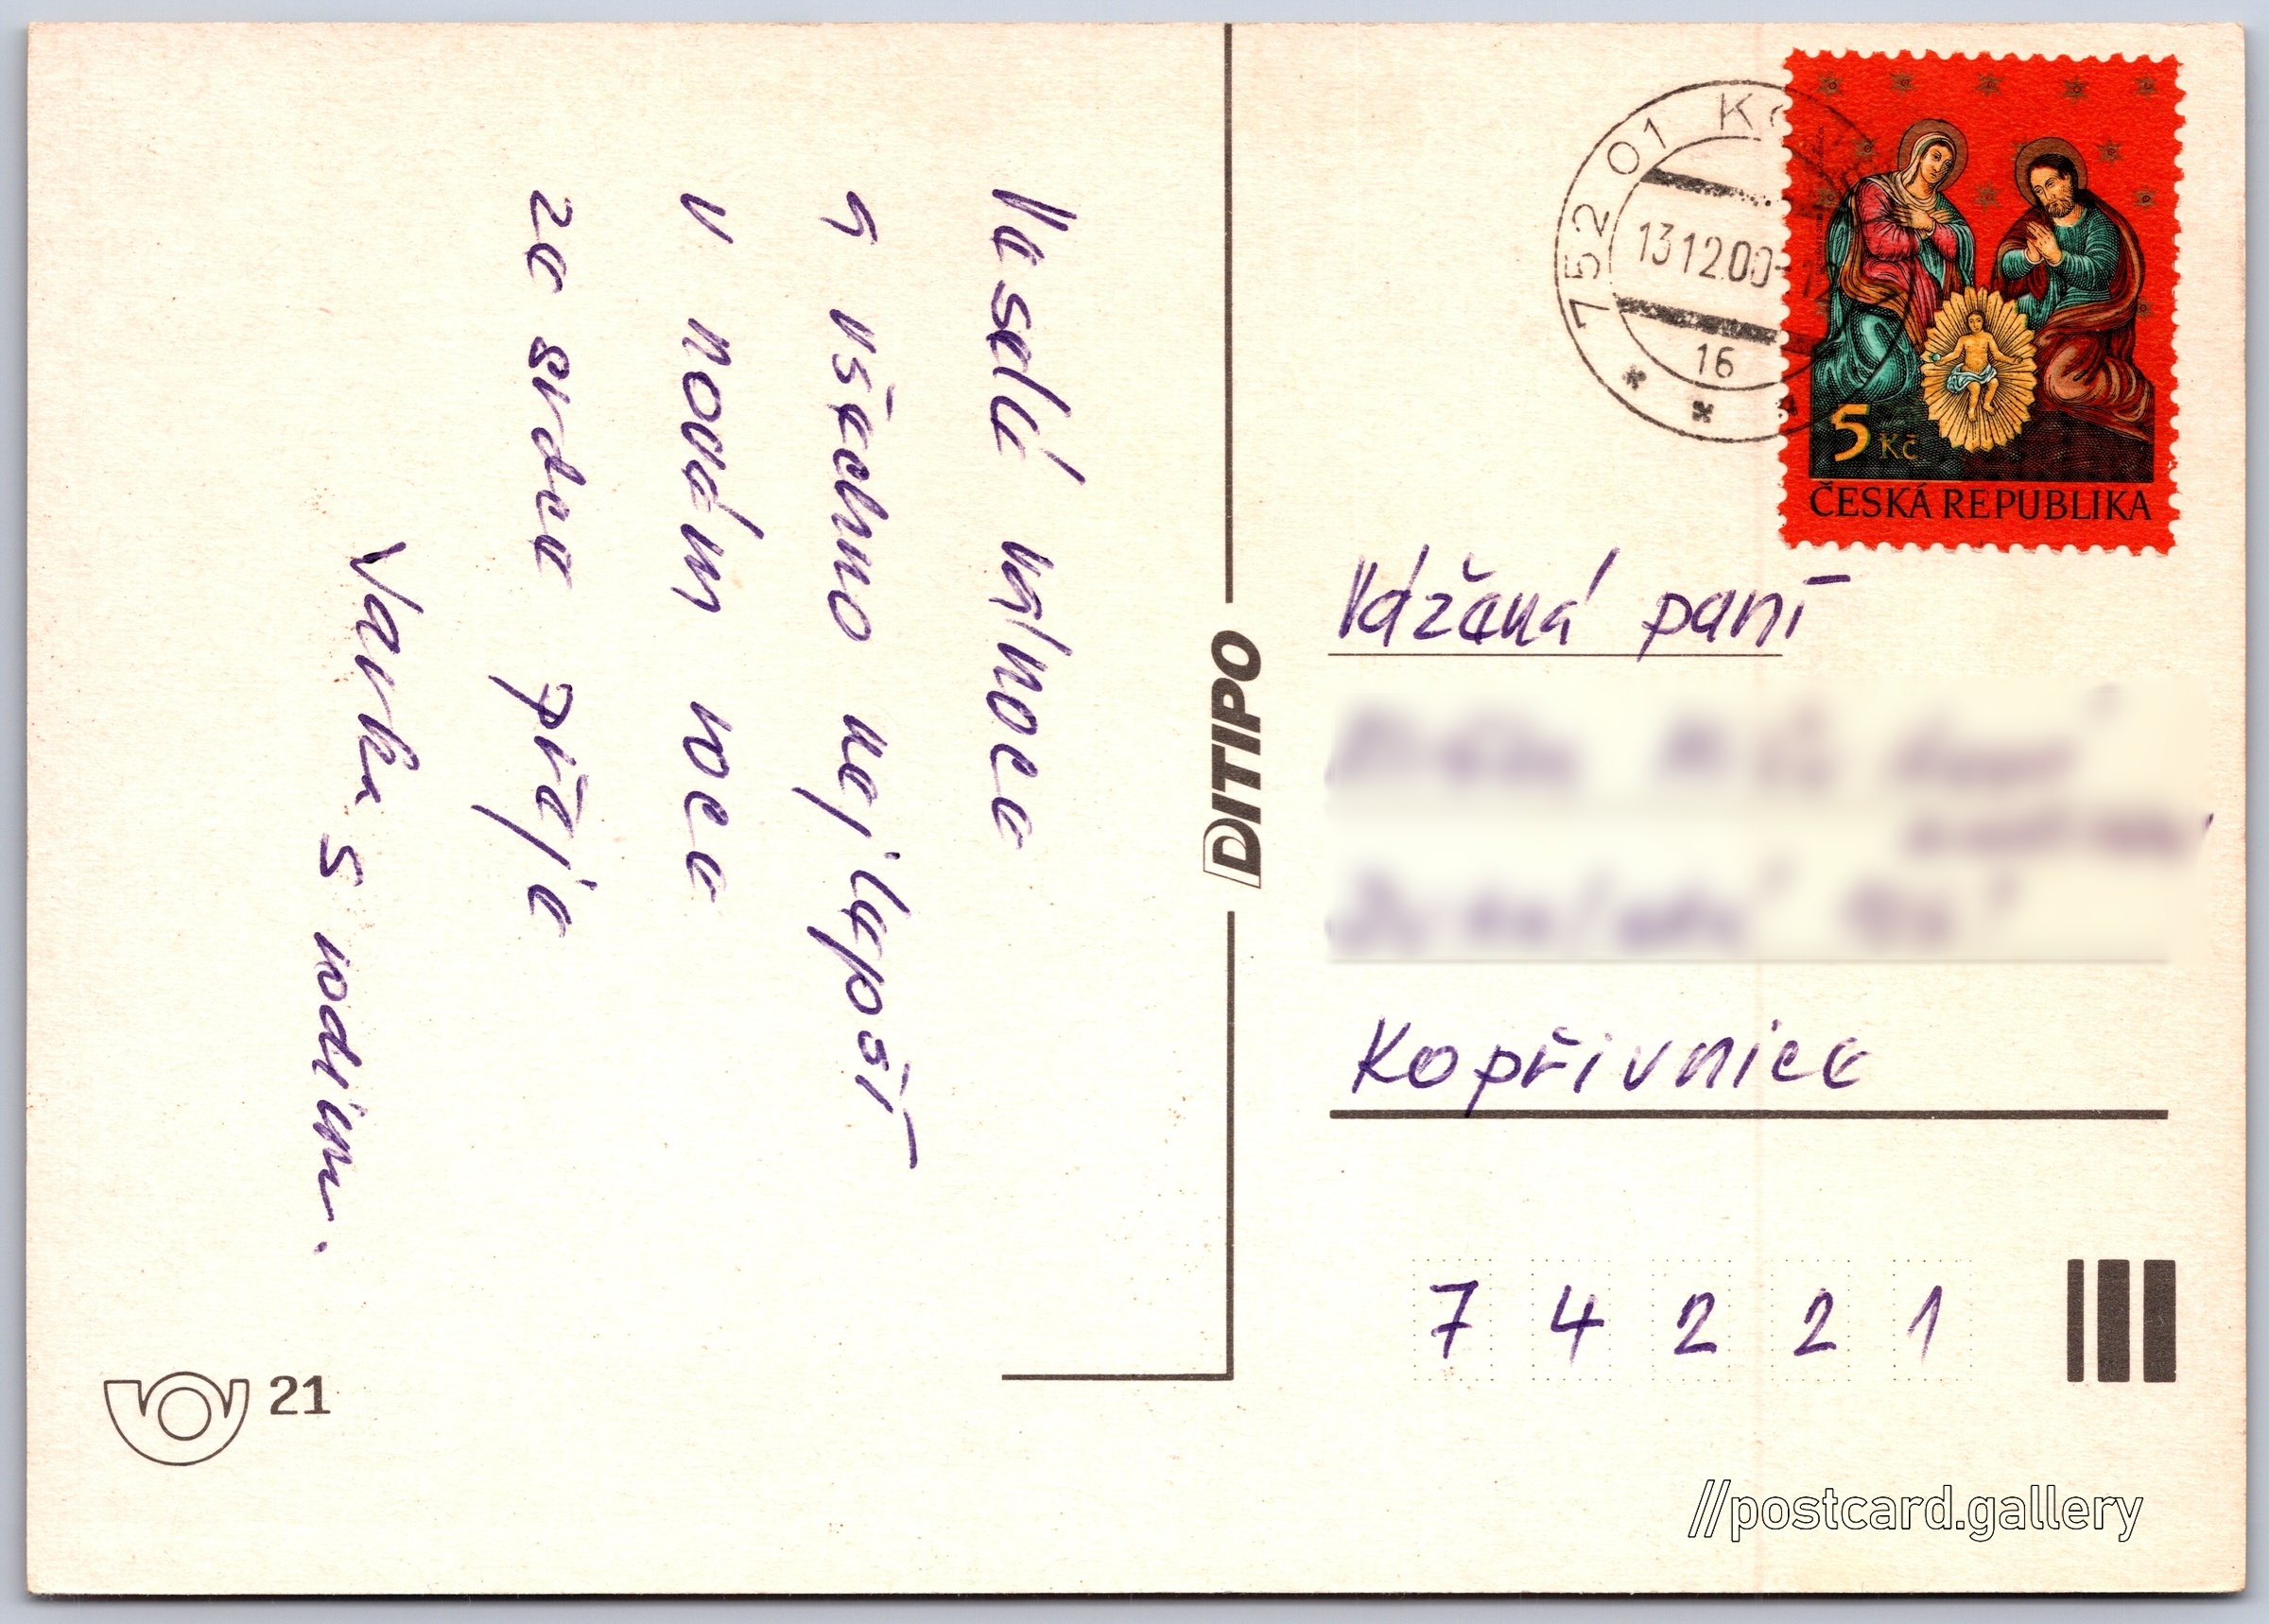 Veselé vánoce
a všechno nejlepší
v novém roce
ze srdce přeje
Vavrka s rodinou.
DITIPO
752 01 KO
13.12.00-12
16
5 Kč
ČESKÁ REPUBLIKA
Vážená paní
Kopřivnice
7 4 2 2 1
21
//postcard.gallery